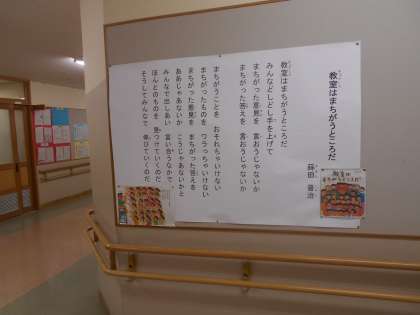 教室はまちがうところだ
蒔田 晋治
教室はまちがうところだ
みんなどしどし手を上げて
まちがった意見を 言おうじゃないか
まちがった答えを 言おうじゃないか
まちがうことを おそれちゃいけない
まちがったものを ワラっちゃいけない
まちがった意見を まちがった答えを
ああじゃあないか こうじゃあないかと
みんなで出しあい 言い合うなかで
ほんとのものを 見つけていくのだ
そうしてみんなで 伸びていくのだ
教室は
まちがうところだ